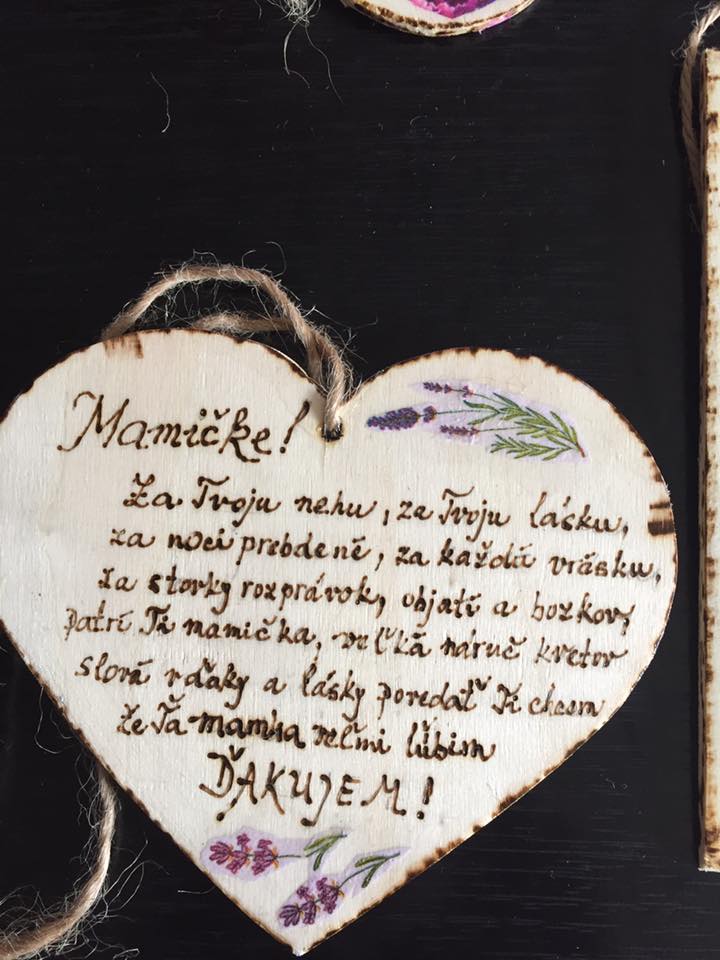 Mamičke!
Za Tvoju nehu, za Tvoju lásku,
za noci prebdené, za každú vrásku,
za storky rozprávok, objatí a bozkov,
patrí Ti mamička, veľká náruč kvetov
slová vďaky a lásky poredať Ti chcem
že Ťa mamka veľmi ľúbim
ĎAKUJEM!